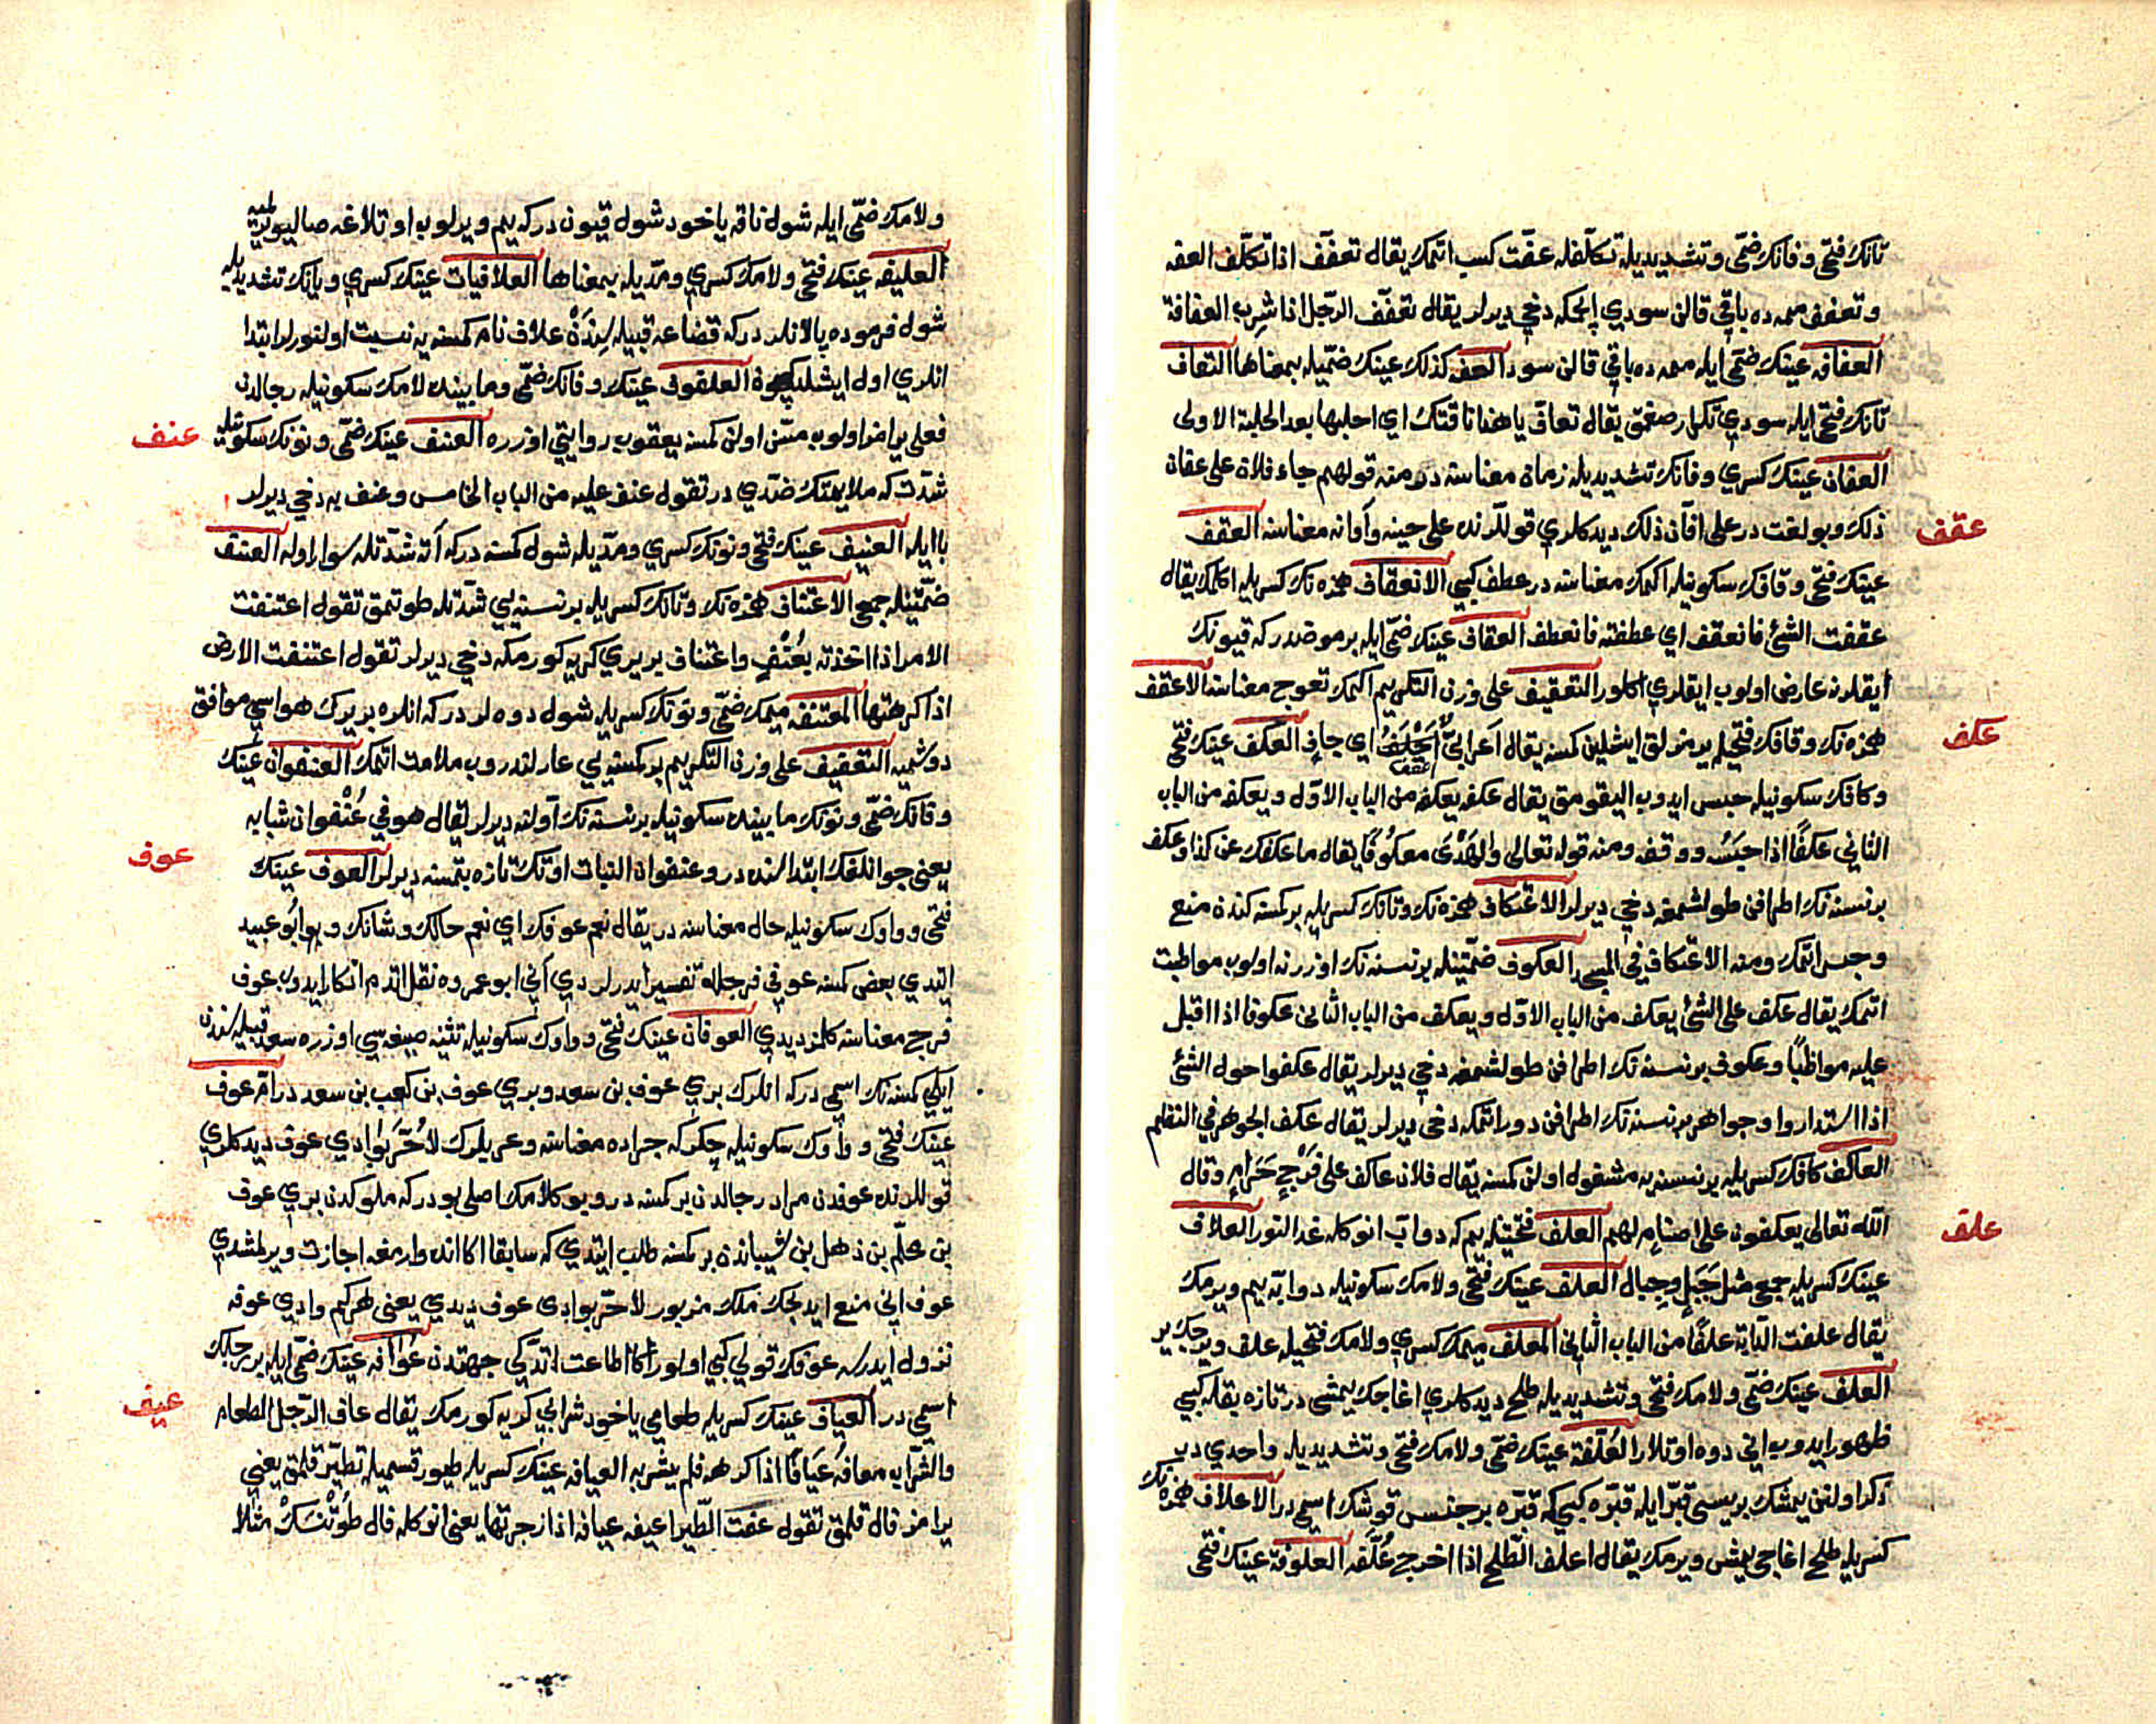 تانك فتحى وفانك ضمى وتشديديله تكلفله عفت كسب اتمك يقال تعفف اذا تكلف العفه
وتعفف ممه ده باقى قالن سودى ايچمكه دخى ديرلر يقال تعفف الرجل اذا شرب العفافة
العفافه عينك ضمى ايله ممه ده باقى قالن سود العفه كذلك عينك ضميله بمعناها التعاف
تانك فتحى ايله سودى تكرار صغمق يقال تعاف يا هذا ناقتك اى احلبها بعد الحلبة الاولى
العفان عينك كسرى وفانك تشديديله زمان معناسنه در ومنه قولهم جاء فلان على عفان
ذلك وبو لغت در على افان ذلك ديدكلرى قوللرنده على حينه وأوانه معناسنه العقف
عقف
عينك فتحى وقافك سكونيله اكمك معناسنه در عطف كبى الانعقاف همزه نك كسريله اكلمك يقال
عقفت الشئ فانعقف اى عطفته فانعطف العقاف عينك ضمى ايله بر مرضدر كه قيونك
ايقلرنه عارض اولوب ايقلرى اكلور التعقيف على وزن التكريم اكمك تعوج معناسنه الاعقف
همزه نك وقافك فتحيله يرمزلق ايشلين كمسنه يقال اعرابى اعقف اى جاف العكف عينك فتحى
عكف
وكافك سكونيله حبس ايدوب اليقومق يقال عكفه يعكفه من الباب الاول ويعكفه من الباب
الثانى عكفا اذا حبسه ووقفه ومنه قوله تعالى والهدى معكوفا يقال ما عكفك عن كذا وعكف
بر نسنه نك اطرافن طولشمغه دخى ديرلر الاعتكاف همزه نك وتانك كسريله بر كمسنه كندن منع
وحبس اتمك ومنه الاعتكاف فى المسجد العكوف ضمتينله بر نسنه نك اوزرنه اولوب مواظبت
اتمك يقال عكف على الشئ يعكف من الباب الاول ويعكف من الباب الثانى عكوفا اذا اقبل
عليه مواظبا وعكوف بر نسنه نك اطرافن طولشمغه دخى ديرلر يقال عكفوا حول الشئ
اذا استداروا وجواهر بر نسنه نك اطرافن دور اتمكه دخى ديرلر يقال عكف الجوهر فى النظم
العاكف كافك كسريله بر نسنه يه مشغول اولن كمسنه يقال فلان عاكف على فرج حرام وقال
الله تعالى يعكفون على اصنام لهم العلف فتحتينله يم كه دواب انوكله غدالنور العلاف
علف
عينك كسريله جمعى مثل جبل وجبال العلف عينك فتحى ولامك سكونيله دوابه يم ويرمك
يقال علفت الدابة علفا من الباب الثانى المعلف ميمك كسرى ولامك فتحيله علف ويرجك ير
العلف عينك ضمى ولامك فتحى وتشديديله طلح ديدكلرى اغاجك يمشى در تازه بقله كبى
ظهور ايدوب انى دوه اوتلار العلفة عينك ضمى ولامك فتحى وتشديديله واحدى در
ذكر اولنن يمشك بريسى قبر ايله قبره كبى كه قبره بر جنس قوشك اسمى در الاعلاف همزه نك
كسريله طلح اغاجى يمش ويرمك يقال اعلف الطلح اذا اخرج علفه العلوفة عينك فتحى
ولامك ضمى ايله شول ناقه ياخود شول قيون در كه يم ويرلوب اوتلاغه صاليويرلميه
العليفه عينك فتحى ولامك كسرى ومديله بمعناها العلافيات عينك كسرى ويانك تشديديله
شول فرموده پالانلردر كه قضاعه قبيله سندن علاف نام كمسنه يه نسبت اولنورلر ابتدا
انلرى اول ايشلديكيچون العلفوف عينك وفانك ضمى ومابينده لامك سكونيله رجالدن
فعلى يرامز اولوب مسن اولن كمسنه يعقوب روايتى اوزره العنف عينك ضمى ونونك سكونيله
عنف
شدت كه ملايمتك ضدى در تقول عنف عليه من الباب الخامس وعنف به دخى ديرلر
با ايله العنيف عينك فتحى ونونك كسرى ومديله شول كمسنه در كه آته شدتله سوار اوله العنف
ضمتينله جمعى الاعتناف همزه نك وتانك كسريله بر نسنه يى شدتله طوتمق تقول اعتنفت
الامر اذا اتخذته بعنف واعتناف بر يرى كريه كورمكه دخى ديرلر تقول اعتنفت الارض
اذا كرهتها المعتنفه ميمك ضمى ونونك كسريله شول دوه لردر كه انلره بر يرك هواسى موافق
دوشميه التعفيف على وزن التكريم بر كمسنه يى عارلندروب ملامت اتمك العنفوان عينك
وفانك ضمى ونونك مابينده سكونيله بر نسنه نك اولنه ديرلر يقال هو فى عنفوان شبابه
يعنى جوانلغك ابتداسنده در وعنفوان النبات اوتك تازه بتمسنه ديرلر العوف عينك
عوف
فتحى وواوك سكونيله حال معناسنه در يقال نعم عوفك اى نعم حالك وشانك وبو ابو عبيد
ايتدى بعض كمسنه عوفى فرجله تفسير ايدرلردى انى ابو عمروه نقل اتدم انكار ايدوب عوف
فرج معناسنه كلمز ديدى العوفان عينك فتحى وواوك سكونيله تثنيه صيغه سى اوزره سعد قبيله سندن
ايكى كمسنه نك اسمى در كه انلرك برى عوف بن سعد وبرى عوف بن كعب بن سعد در ام عوف
عينك فتحى وواوك سكونيله چكركه جراده معناسنه وعربلرك لا حر بوادى عوف ديدكلرى
قوللرنده عوفدن مراد رجالدن بر كمسنه در وبو كلامك اصلى بودر كه ملوكدن برى عوف
بن محلم بن ذهل بن شيباندن بر كمسنه طلب ايتدى كه سابقا اكا انده وارمغه اجازت ويرلمشدى
عوف انى منع ايدجك ملك مزبور لا حر بوادى عوف ديدى يعنى هر كيم وادى عوفه
نزول ايدرسه عوفك قولى كبى اولور اكا اطاعت اتدكى جهتدن عوافه عينك ضمى ايله بر رجلك
اسمى در العياف عينك كسريله طعامى ياخود شرابى كريه كورمك يقال عاف الرجل الطعام
عيف
والشراب معافه عيافا اذا كرهه فلم يشربه العيافه عينك كسريله طيور قسميله تطير قلمق يعنى
يرامز فال قلمق تقول عفت الطير اعيفه عيافة اذا زجرتها يعنى انوكله فال طوتسك مثلا